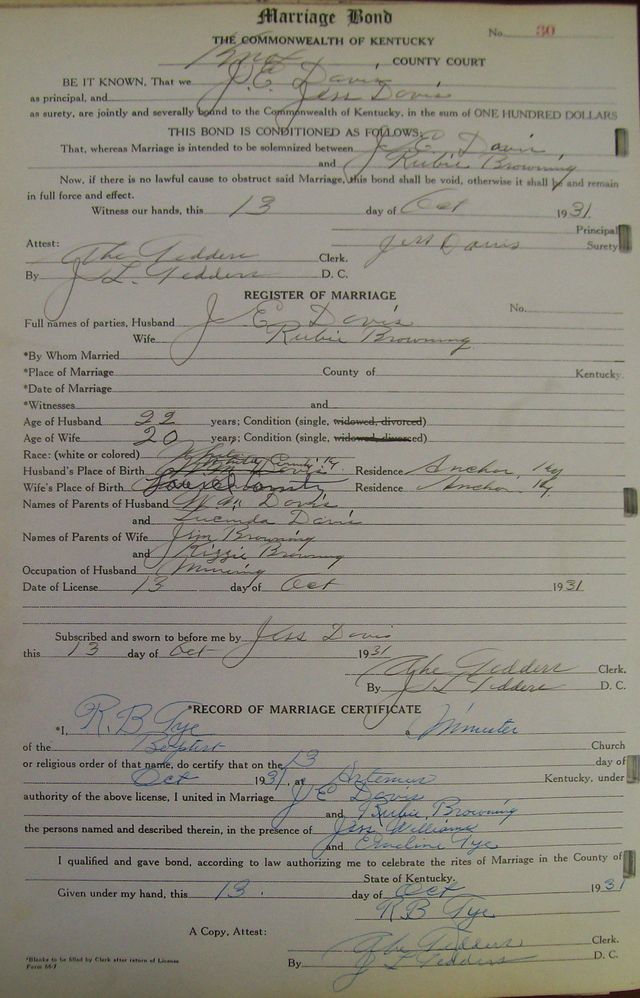 Marriage Bond
No. 30
THE COMMONWEALTH OF KENTUCKY
Knox COUNTY COURT
BE IT KNOWN, That we J. E. Davis
as principal, and Jess Davis
as surety, are jointly and severally bound to the Commonwealth of Kentucky, in the sum of ONE HUNDRED DOLLARS
THIS BOND IS CONDITIONED AS FOLLOWS:
That, whereas Marriage is intended to be solemnized between J. E. Davis
and Rubie Browning
Now, if there is no lawful cause to obstruct said Marriage, this bond shall be void, otherwise it shall be and remain
in full force and effect.
Witness our hands, this 13 day of Oct 1931.
Principal
Attest: Jess Davis Surety
Abe Gedders Clerk.
By J L Gedders D. C.
REGISTER OF MARRIAGE
No.
Full names of parties, Husband J E Davis
Wife Rubie Browning
*By Whom Married
*Place of Marriage County of Kentucky.
*Date of Marriage
*Witnesses and
Age of Husband 22 years; Condition (single, widowed, divorced)
Age of Wife 20 years; Condition (single, widowed, divorced)
Race: (white or colored) White
Husband's Place of Birth County Ky. Residence Anchor, Ky
Wife's Place of Birth Laurel County Residence Anchor, Ky
Names of Parents of Husband Davis
and Lucinda Davis
Names of Parents of Wife Jim Browning
and Kizzie Browning
Occupation of Husband Mining
Date of License 13 day of Oct 1931
Subscribed and sworn to before me by Jess Davis
this 13 day of Oct 1931
Abe Gedders Clerk.
By J L Gedders D. C.
*RECORD OF MARRIAGE CERTIFICATE
*I, R. B Tye a Minister
of the Baptist Church
or religious order of that name, do certify that on the 13 day of
Oct 1931, at Artemus Kentucky, under
authority of the above license, I united in Marriage J E Davis
and Rubie Browning
the persons named and described therein, in the presence of Jess Williams
and Emeline Tye
I qualified and gave bond, according to law authorizing me to celebrate the rites of Marriage in the County of
State of Kentucky.
Given under my hand, this 13. day of Oct 1931
R B Tye
A Copy, Attest:
Abe Gedders Clerk.
By J L Gedders D. C.
*Blanks to be filled by Clerk after return of License
Form 66-7